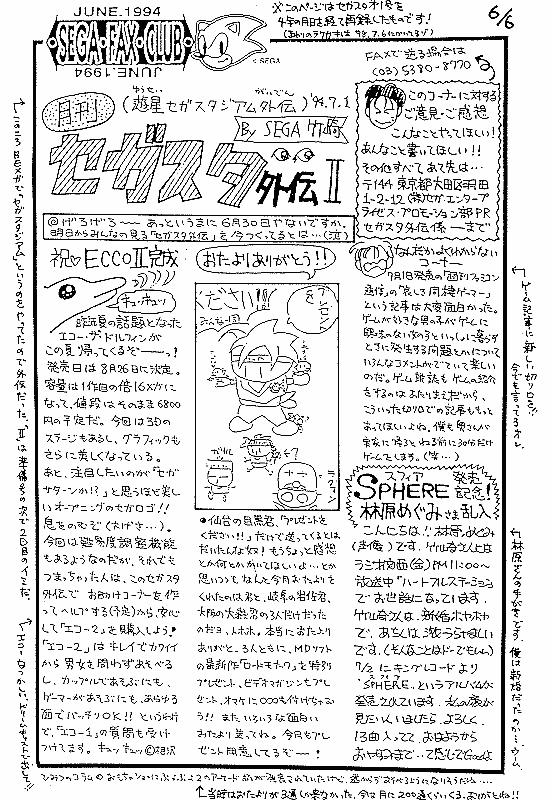 JUNE.1994
SEGA・FAX・CLUB
© SEGA
※このページはセガスタオ1号を
4年の月日を経て再録したものです！
6/6
FAXで送る場合は
(03)5380-8770
月刊
(遊星セガスタジアム外伝)'94.7.1
By SEGA 竹崎
セガスタ外伝 II
＠げろげろ〜〜 あっというまに6月30日やないですか。
明日からみんなの見る「セガスタ外伝」を今つくってるとは…(泣)
祝♡ECCOII完成
キュッキュッ
昨年夏の話題となった
エコー・ザ・ドルフィンが
この夏帰ってくるぞーーっ！
発売日は8月26日に決定。
容量は1作目の倍16メガに
なって、値段はそのまま6800
円の予定だ。今回は3Dの
ステージもあるし、グラフィックも
さらに美しくなっている。
あと、注目したいのが「セガ
サターンか!?」と思うほど美し
いオープニングのセガロゴ!!
息をのむぞ(大げさ…)。
今回は難易度調整機能
もあるようなのだが、それでも
つまっちゃった人は、このセガスタ
外伝で お助けコーナーを作
ってヘルプする(予定)から、安心
して「エコー2」を購入しよう！
「エコー2」はキレイでカワイイ
から男女を問わずあそべる
し、カップルであそぶにも、
ゲーマーがあそぶにも、あらゆる
面でバッチリOK!! というわけ
で、「エコー1」の質問も受け
つけてます。キュッキュッ©相沢
おたよりありがとう!!
ください!!
●仙台の目黒君、「プレゼントを
ください!!」だけで送ってくるとは
だいたんな奴！もうちょっと感想
とか何とかかいてほしいよ…とか
思いつつ なんと今月おたよりを
くれたのは君と、岐阜の岩佐君、
大阪の大熱君の3人だけだった
のだヨ、トホホ。本当におたより
ありがと。3人ともに、MDソフト
の最新作「ロードモナーク」を特別
プレゼント、ビデオマガジンもプレ
ゼント、オマケに○○○も付けちゃお
う!! また いろいろな面白い
おたより送ってね。今月もプレ
ゼント用意してるぞー！
このコーナーに対する
ご意見・ご感想
こんなことやってほしい！
あんなこと書いてほしい!!
その他すべて あて先は…
〒144 東京都大田区羽田
1-2-12 (株)セガ・エンタープ
ライゼス・プロモーション部PR
セガスタ外伝係 ーーまで
なんだかよくわからない
コーナー
7月1日発売の「週刊ファミコン
通信」の「哀しき同棲ゲーマー」
という記事は大変面白かった。
ゲームが好きな男の子がゲームに
興味のない女の子といっしょに暮らす
ときに発生する問題とかについて
いろんなコメントがでていて楽しい
のだ。ゲーム雑誌もゲームの紹介
をするのはあたりまえだから、
こういった切り口での記事ももっと
あってほしいよね。僕も奥さんが
実家に帰ると ねる前に30分だけ
ゲームしてます。(笑…)
スフィア
SPHERE 発売記念！
林原めぐみさま乱入
こんにちは!! 林原めぐみ
(声優)です。竹崎さんとは
ラジオ文化(金)PM11:00〜
放送中「ハートフルステーション」
でお世話になっています。
竹崎さんは、新婚ホヤホヤ
で、あちしは淡々うらやましい
です。(そんなことはどーでもいい)
7/2にキングレコードより
“SPHERE”というアルバムが
発売されています。私の姿が
見たい人いましたら、よろしく。
13曲入ってて、おはようから
おやすみまで…て感じでGoodよ
ゲーム記事に新しい切り口を!!
今でも言ってるネ。
林原さんの手がきです。俺は新婚だったのか…ウーム。
エコーなつかしい。ドリームキャストで出して!!
当時はおたよりが3通しか来なかった。今は月に200通くらいくる。ありがとね!!